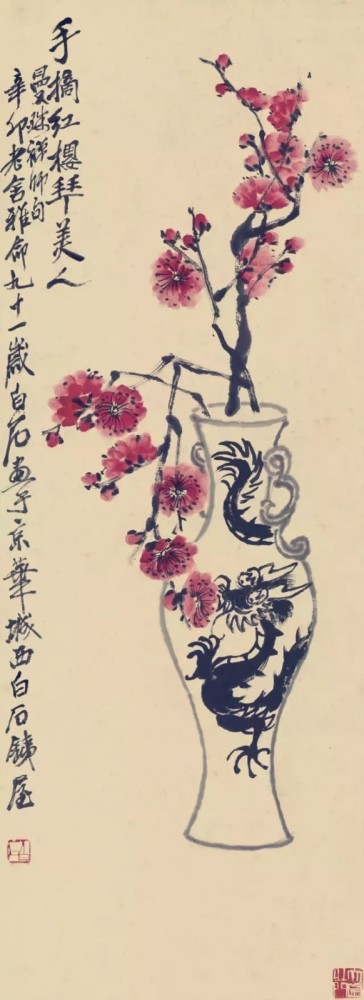 手摘红樱拜美人
曼殊禅师句
辛卯老舍雅命九十一岁白石画于京华城西白石铁屋